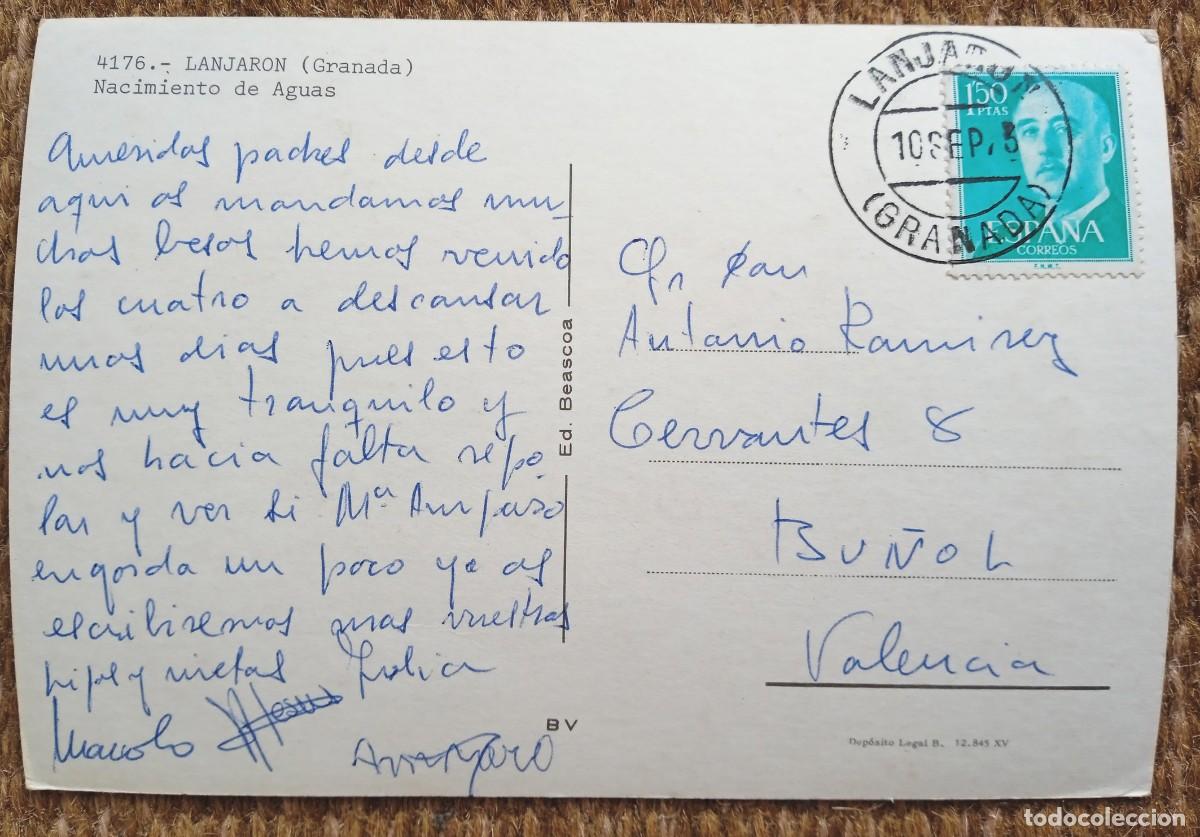 4176.- LANJARON (Granada)
Nacimiento de Aguas
Queridos padres desde
aqui os mandamos mu-
chos besos hemos venido
los cuatro a descansar
unos dias pues esto
es muy tranquilo y
nos hacia falta repo
sar y ver si Mª Amparo
engorda un poco ya os
escribiremos mas vuestros
hijos y nietas Julia
Manolo
AMPARO
Ed. Beascoa
BV
LANJARON
10 SEP.
(GRANADA)
1'50
PTAS
ESPAÑA
CORREOS
F.N.M.T.
Sr Don
Antonio Ramirez
Cervantes 8
BUÑOL
Valencia
Depósito Legal B. 12.845 XV
todocoleccion